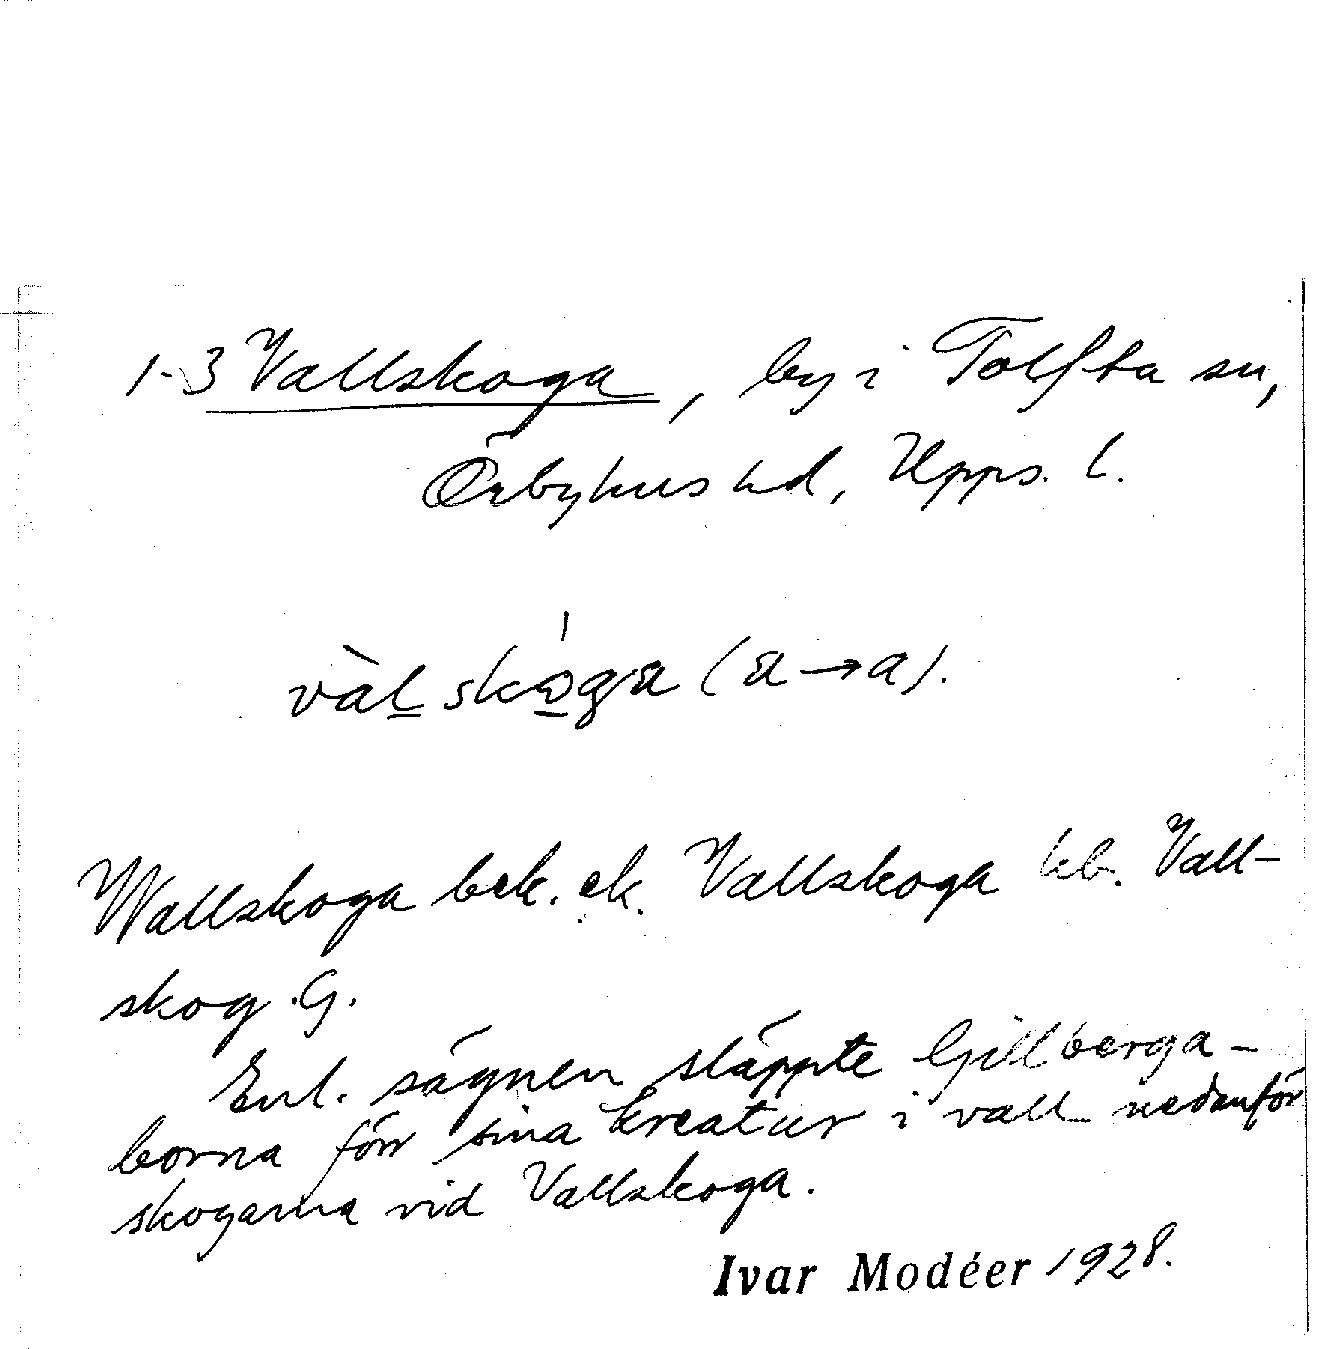 1-3 Vallskoga, by i Tolfta sn,
Örbyhus hd, Upps. l.
vàlskò̱ga (a→a).
Wallskoga bek. ek. Vallskoga hb. Vall-
skog G.
Enl. sägnen släppte Gillberga-
borna förr sina kreatur i vall nedanför
skogarna vid Vallskoga.
Ivar Modéer 1928.